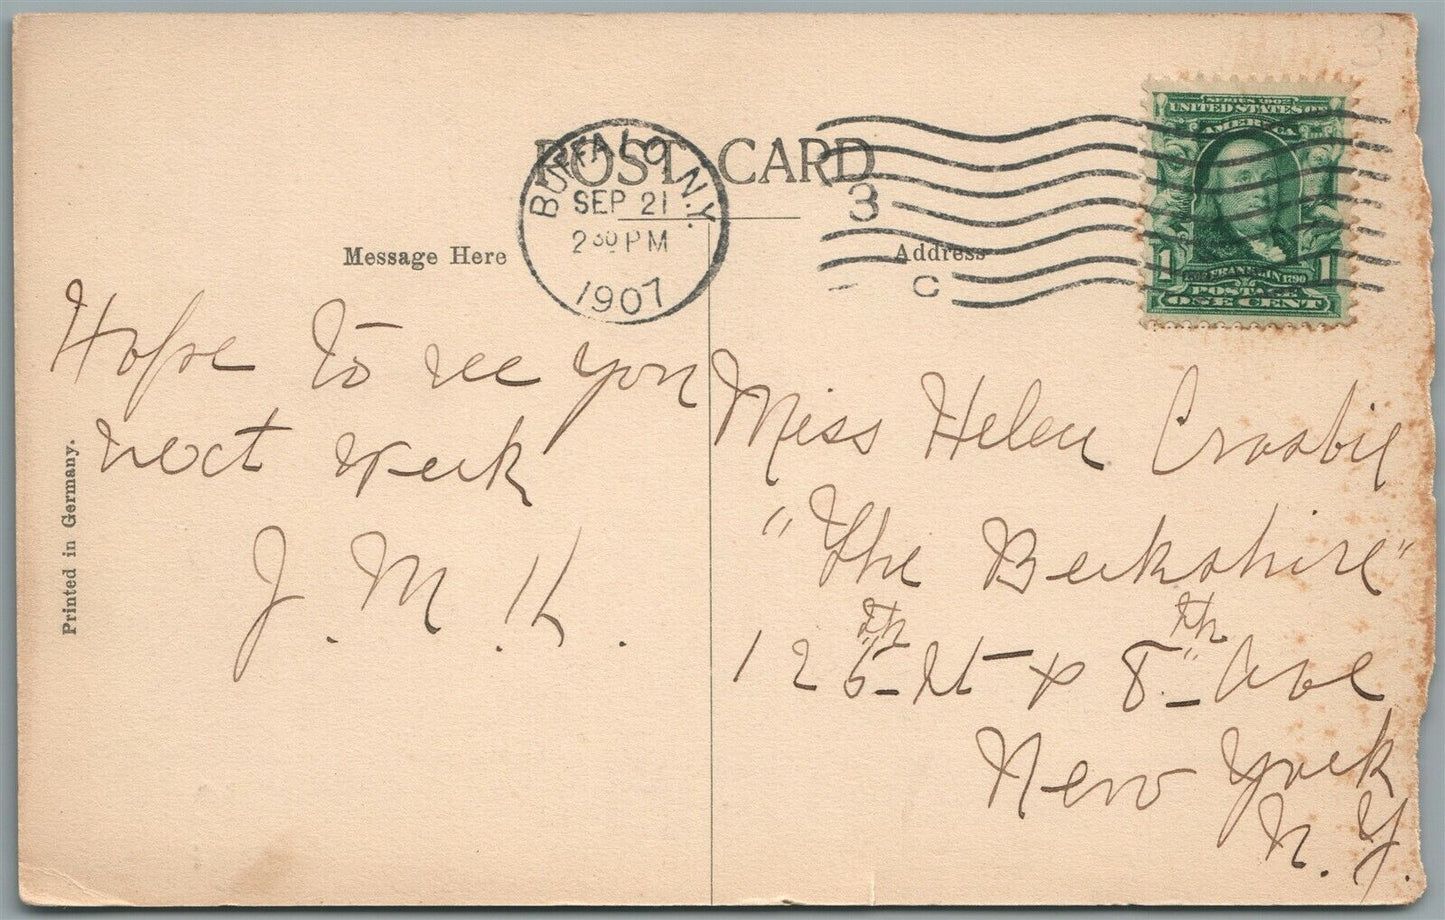 POST CARD
BUFFALO, N.Y.
SEP 21
2 30 PM
1907
3
C
SERIES 1902
UNITED STATES OF
AMERICA
FRANKLIN
1 1
POSTAGE
ONE CENT
Message Here
Address
Printed in Germany.
Hope to see you
next week
J. M. K.
Miss Helen Crosbie
"The Berkshire"
126th St & 8th Ave
New York
N.Y.